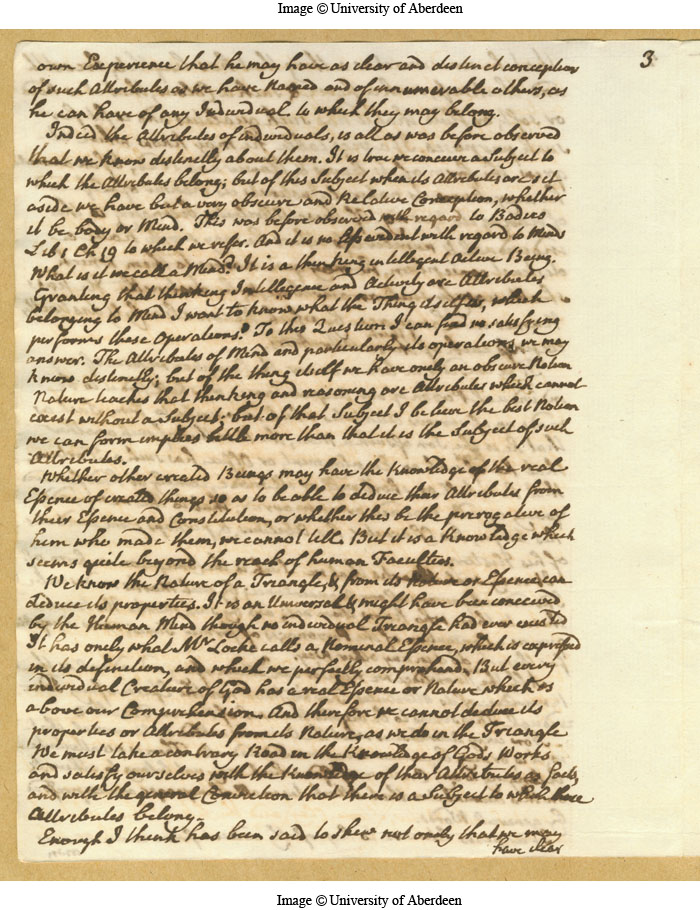 Image © University of Aberdeen
3
own Experience that he may have as clear and distinct conception
of such Attributes as we have Named and of innumerable others, as
he can have of any Individual to which they may belong.
Indeed the Attributes of individuals, is all as was before observed
that we know distinctly about them. It is true we conceive a Subject to
which the Attributes belong; but of this Subject when its Attributes are set
aside we have but a very obscure and Relative Conception, whether
it be body or Mind. This was before observed with regard to Bodies
Lib 1 Ch 19 to which we refer. And it is no less evident with regard to Minds
What is it we call a Mind? It is a thinking intelligent Active Being.
Granting that thinking Intelligence and Activity are Attributes
belonging to Mind I want to know what the Thing itself is, which
performs these Operations? To this Question I can find no satisfying
answer. The Attributes of Mind and particularly its operations we may
know distinctly; but of the thing itself we have only an obscure Notion
Nature teaches that thinking and reasoning are Attributes which cannot
exist without a Subject; but of that Subject I believe the best Notion
we can form implies little more than that it is the Subject of such
Attributes.
Whether other created Beings may have the Knowledge of the real
Essence of created things so as to be able to deduce their Attributes from
their Essence and Constitution, or whether this be the prerogative of
him who made them, we cannot tell. But it is a Knowledge which
seems quite beyond the reach of human Faculties.
We know the Nature of a Triangle, & from its Nature or Essence can
deduce its properties. It is an Universal & might have been conceived
by the Human Mind though no individual Triangle had ever existed
It has only what Mr Locke calls a Nominal Essence, which is expressed
in its definition, and which we perfectly comprehend. But every
individual Creature of God has a real Essence or Nature which is
above our Comprehension. And therefore we cannot deduce its
properties or Attributes from its Nature, as we do in the Triangle
We must take a contrary Road in the Knowledge of Gods Works
and satisfy ourselves with the Knowledge of their Attributes as facts,
and with the general Conviction that there is a Subject to which those
Attributes belong.
Enough I think has been said to shew not only that we may
have clear
Image © University of Aberdeen